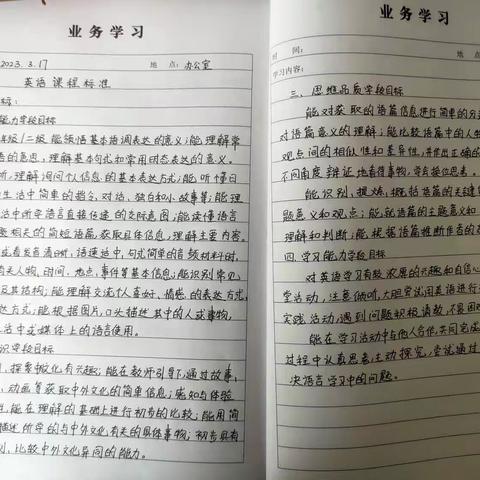 业务学习
2023.3.17 地点:办公室
英语课程标准
标:
能力学段目标
年级/二级 能领悟基本语调表达的意义;能理解常
语的意思,理解基本句式和常用时态表达的意义。
听,理解询问个人信息的基本表达方式;能听懂日
生活中简单的指令、对话、独白和小故事等;能理
活中所学语言直接传递的交际意图;能读懂语言
相关的简短语篇,获取具体信息,理解主要内容。
或看发音清晰、语速适中、句式简单的音频材料时,
有关人物、时间、地点、事件等基本信息;能识别常见
及其结构;能理解交流个人喜好、情感的表达方式,
达方式;能根据图片,口头描述其中的人或事物,
生活中或媒体上的语言使用。
识学段目标
,探索文化有兴趣;能在教师引导下,通过故事,
、动画等获取中外文化的简单信息;感知与体验
性,能在理解的基础上进行初步的比较;能用简
描述所学的与中外文化有关的具体事物;初步具有
别、比较中外文化异同的能力。
业务学习
时 间: 地点
学习内容:
三、思维品质学段目标
能对获取的语篇信息进行简单的分
对语篇意义的理解;能比较语篇中的人物
观点间的相似性和差异性,并作出正确的
不同角度辩证地看待事物,学会换位思考。
能识别、提炼、概括语篇的关键
题意义和观点;能就语篇的主题意义和
理解和判断;能根据语篇推断作者的
四、学习能力学段目标
对英语学习有较浓厚的兴趣和自信心
堂活动,注意倾听,大胆尝试用英语进行
实践活动,遇到问题积极请教,不畏困难
能在学习活动中与他人合作,共同完成
过程中认真思考,主动探究,尝试通过
决语言学习中的问题。